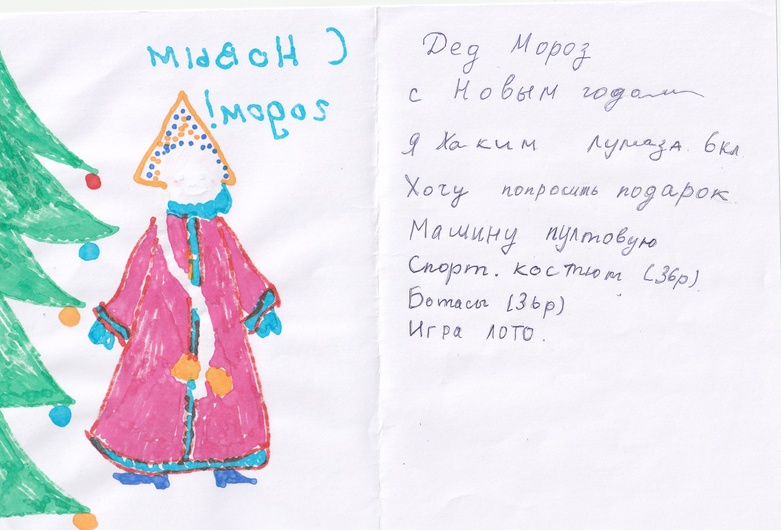 С Новым
годом!
Дед Мороз
с Новым годом
Я Хаким 6кл
Хочу попросить подарок
Машину пултовую
Спорт. костюм (36р)
Ботасы (36р)
Игра лото.